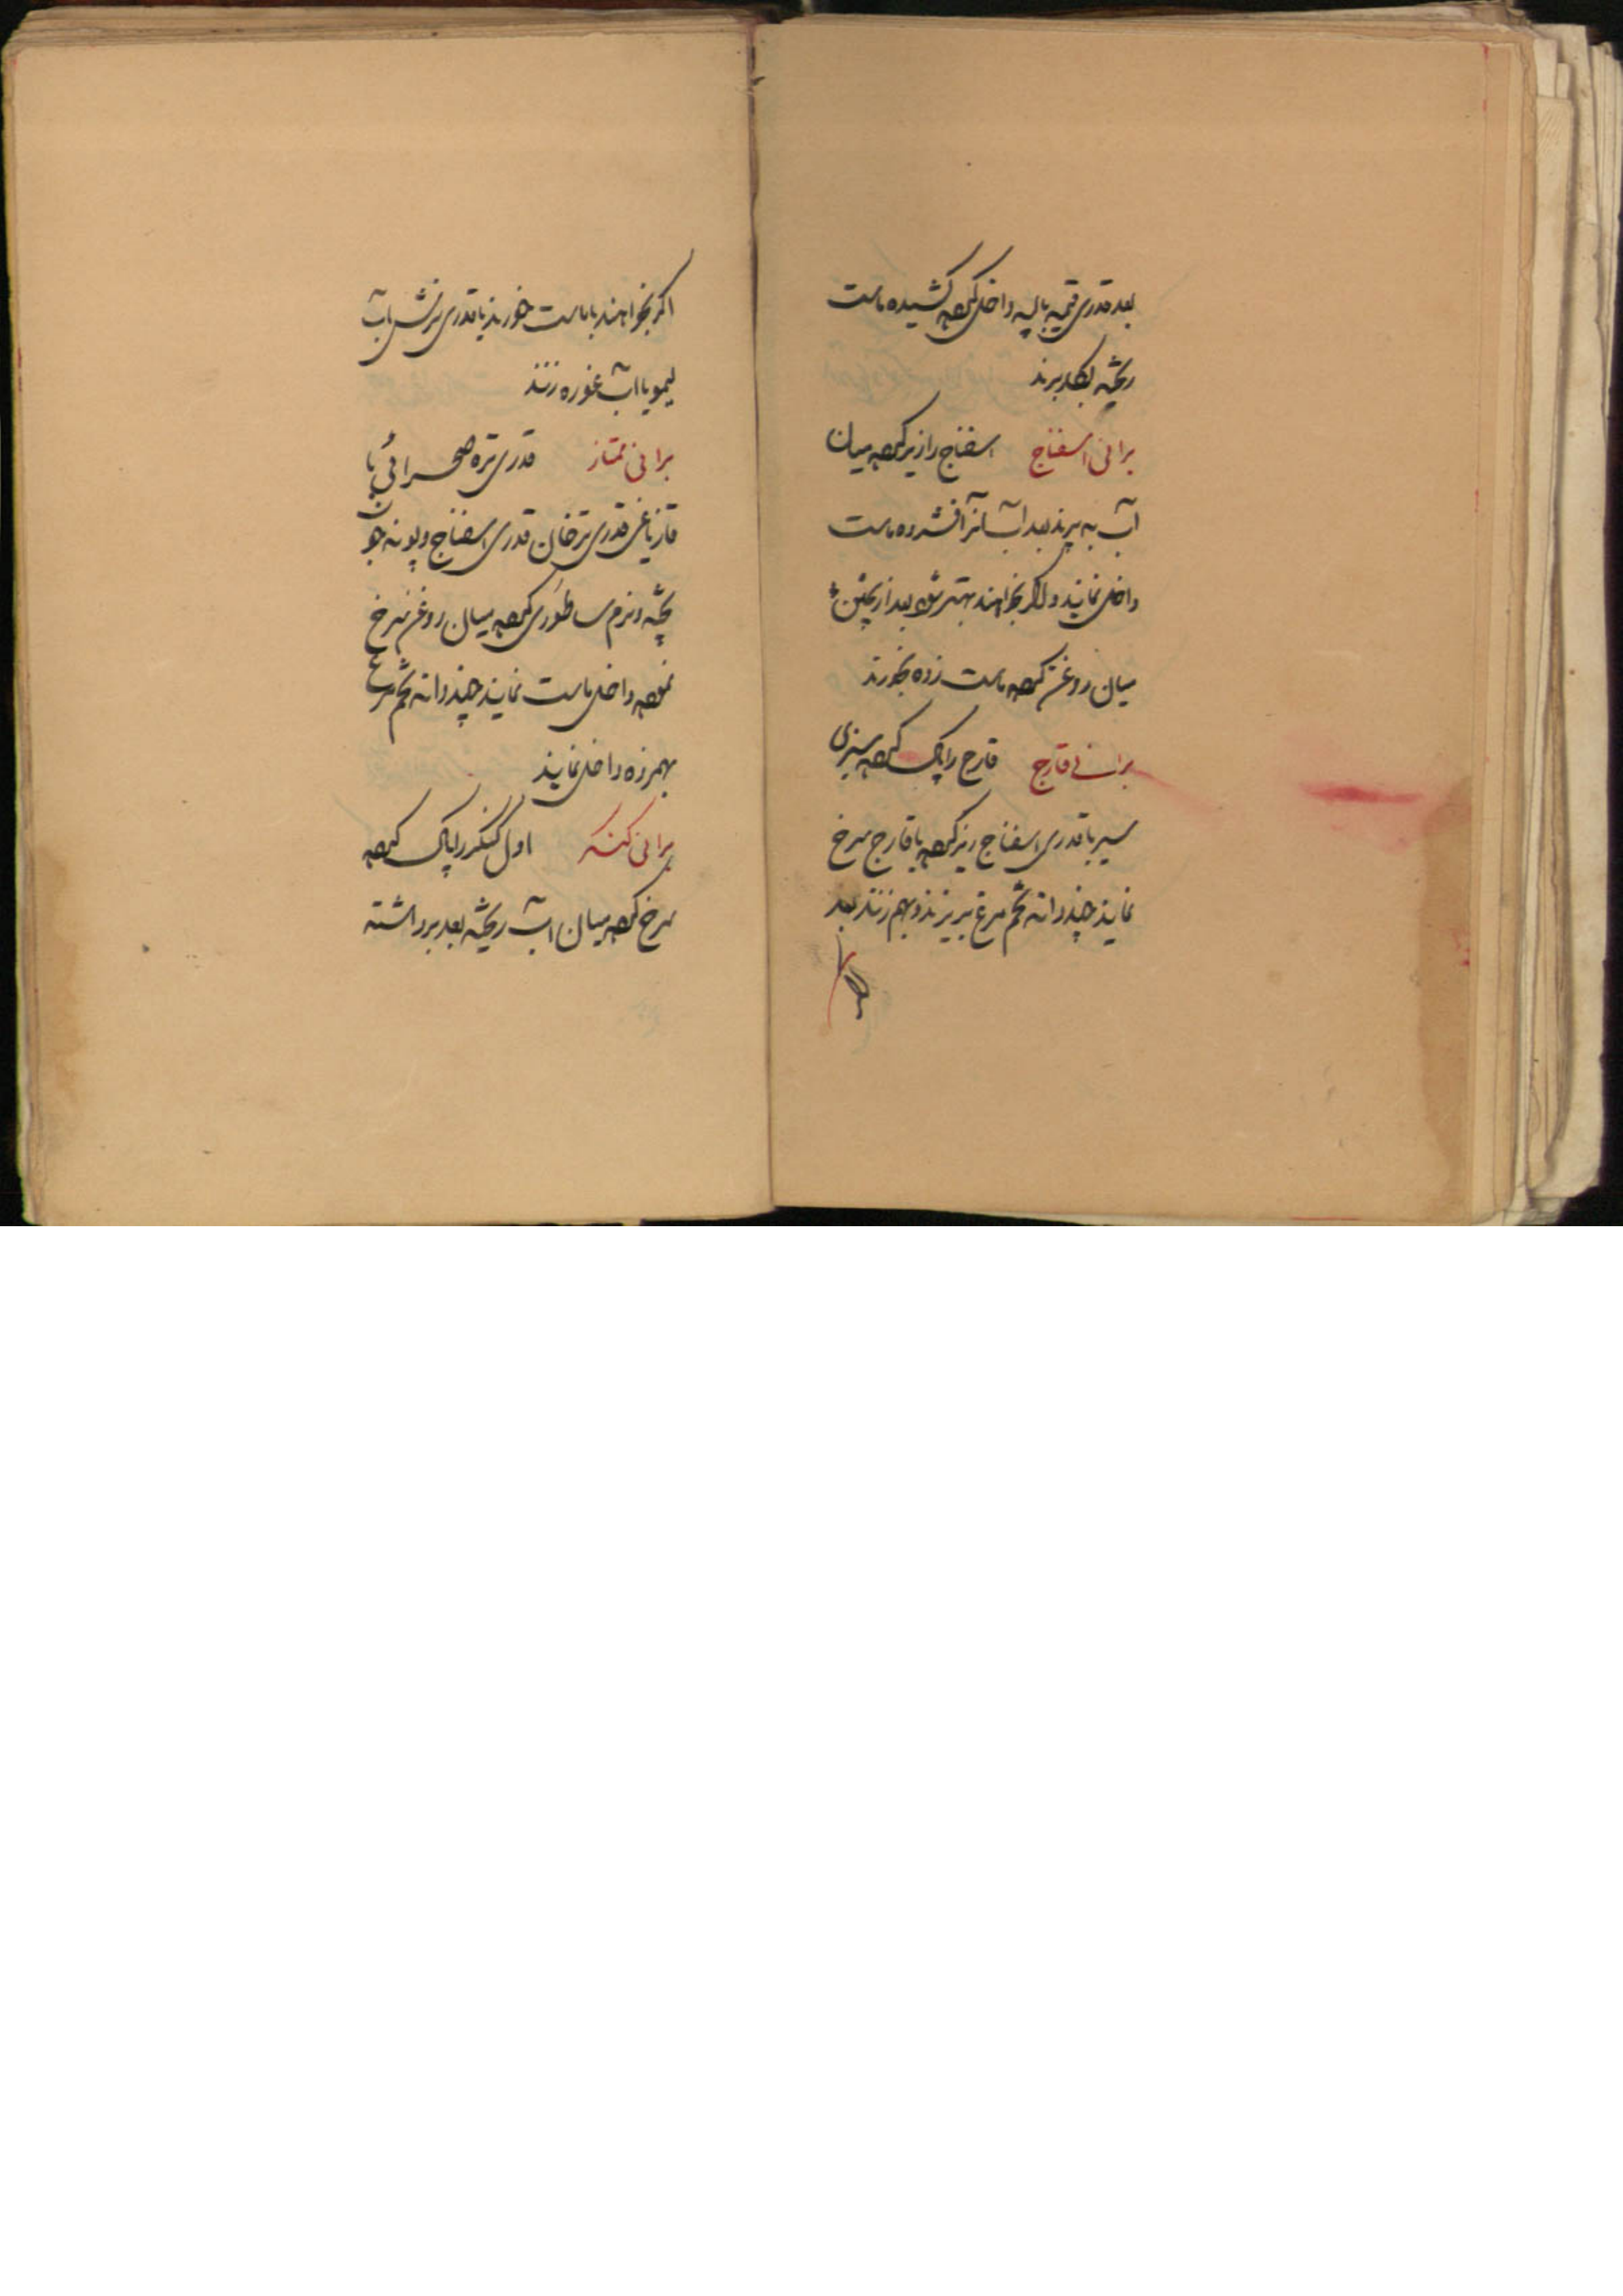 بعد قدری قیمه پیاله داخل کرده کشیده ماست
ریخته بکار برند
برانی اسفناج اسفناج را ریز کرده میان
آب به پزند بعد آب آنرا فشرده ماست
داخل نمایند و اگر بخواهند بهتر شود بعد از پختن
میان روغن کرده ماست زده بخورند
برانی قارچ قارچ را پاک کرده سبزی
سیر با قدری اسفناج ریز کرده با قارچ سرخ
نمایند چند دانه تخم مرغ بریزند و بهم زنند بعد
اگر بخواهند با ماست خورند یا قدری ترشی آب
لیمو یا آب غوره زنند
برانی ممتاز قدری تره صحرائی یا
قازیاغی قدری ترخان قدری اسفناج و پونه جو
پخته و نرم ساطوری کرده میان روغن سرخ
نموده داخل ماست نمایند چند دانه تخم مرغ
بهم زده داخل نمایند
برانی کنگر اول کنگر را پاک کرده
سرخ کرده میان آب ریخته بعد برداشته